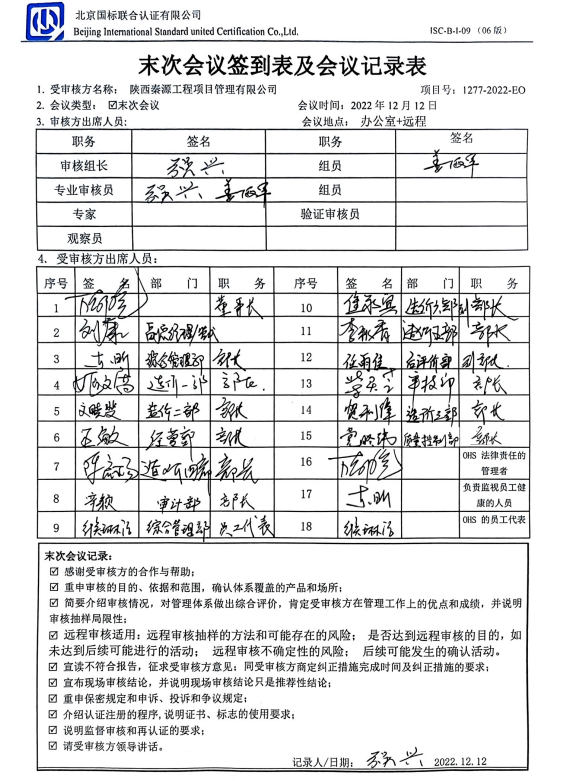 北京国标联合认证有限公司
Beijing International Standard united Certification Co.,Ltd.
ISC-B-I-09 （06 版）
末次会议签到表及会议记录表
1. 受审核方名称： 陕西秦源工程项目管理有限公司 项目号：1277-2022-EO
2. 会议类型： ☑末次会议 会议时间：2022 年 12 月 12 日
3. 审核方出席人员: 会议地点： 办公室+远程
职务 签名 职务 签名
审核组长 组员
专业审核员 组员
专家 验证审核员
观察员
4. 受审核方出席人员：
序号 签 名 部 门 职 务 序号 签 名 部 门 职 务
1 董事长 10 部长
2 刘 11 部长
3 综合管理部 部长 12
4 造价二部 部长 13 部长
5 造价二部 部长 14 造价三部 部长
6 王敏 经营部 部长 15 质量控制部 部长
7 造价四部 部长 16 OHS 法律责任的管理者
8 辛颖 审计部 部长 17 负责监视员工健康的人员
9 综合管理部 员工代表 18 OHS 的员工代表
末次会议记录：
☑ 感谢受审核方的合作与帮助；
☑ 重申审核的目的、依据和范围，确认体系覆盖的产品和场所；
☑ 简要介绍审核情况，对管理体系做出综合评价，肯定受审核方在管理工作上的优点和成绩，并说明
审核抽样局限性；
☑ 远程审核适用：远程审核抽样的方法和可能存在的风险； 是否达到远程审核的目的，如
未达到后续可能进行的活动； 远程审核不确定性的风险； 后续可能发生的确认活动。
☑ 宣读不符合报告，征求受审核方意见；同受审核方商定纠正措施完成时间及纠正措施的要求；
☑ 宣布现场审核结论，并说明现场审核结论只是推荐性结论；
☑ 重申保密规定和申诉、投诉和争议规定；
☑ 介绍认证注册的程序, 说明证书、标志的使用要求；
☑ 说明监督审核和再认证的要求；
☑ 请受审核方领导讲话。
记录人/日期: 2022.12.12